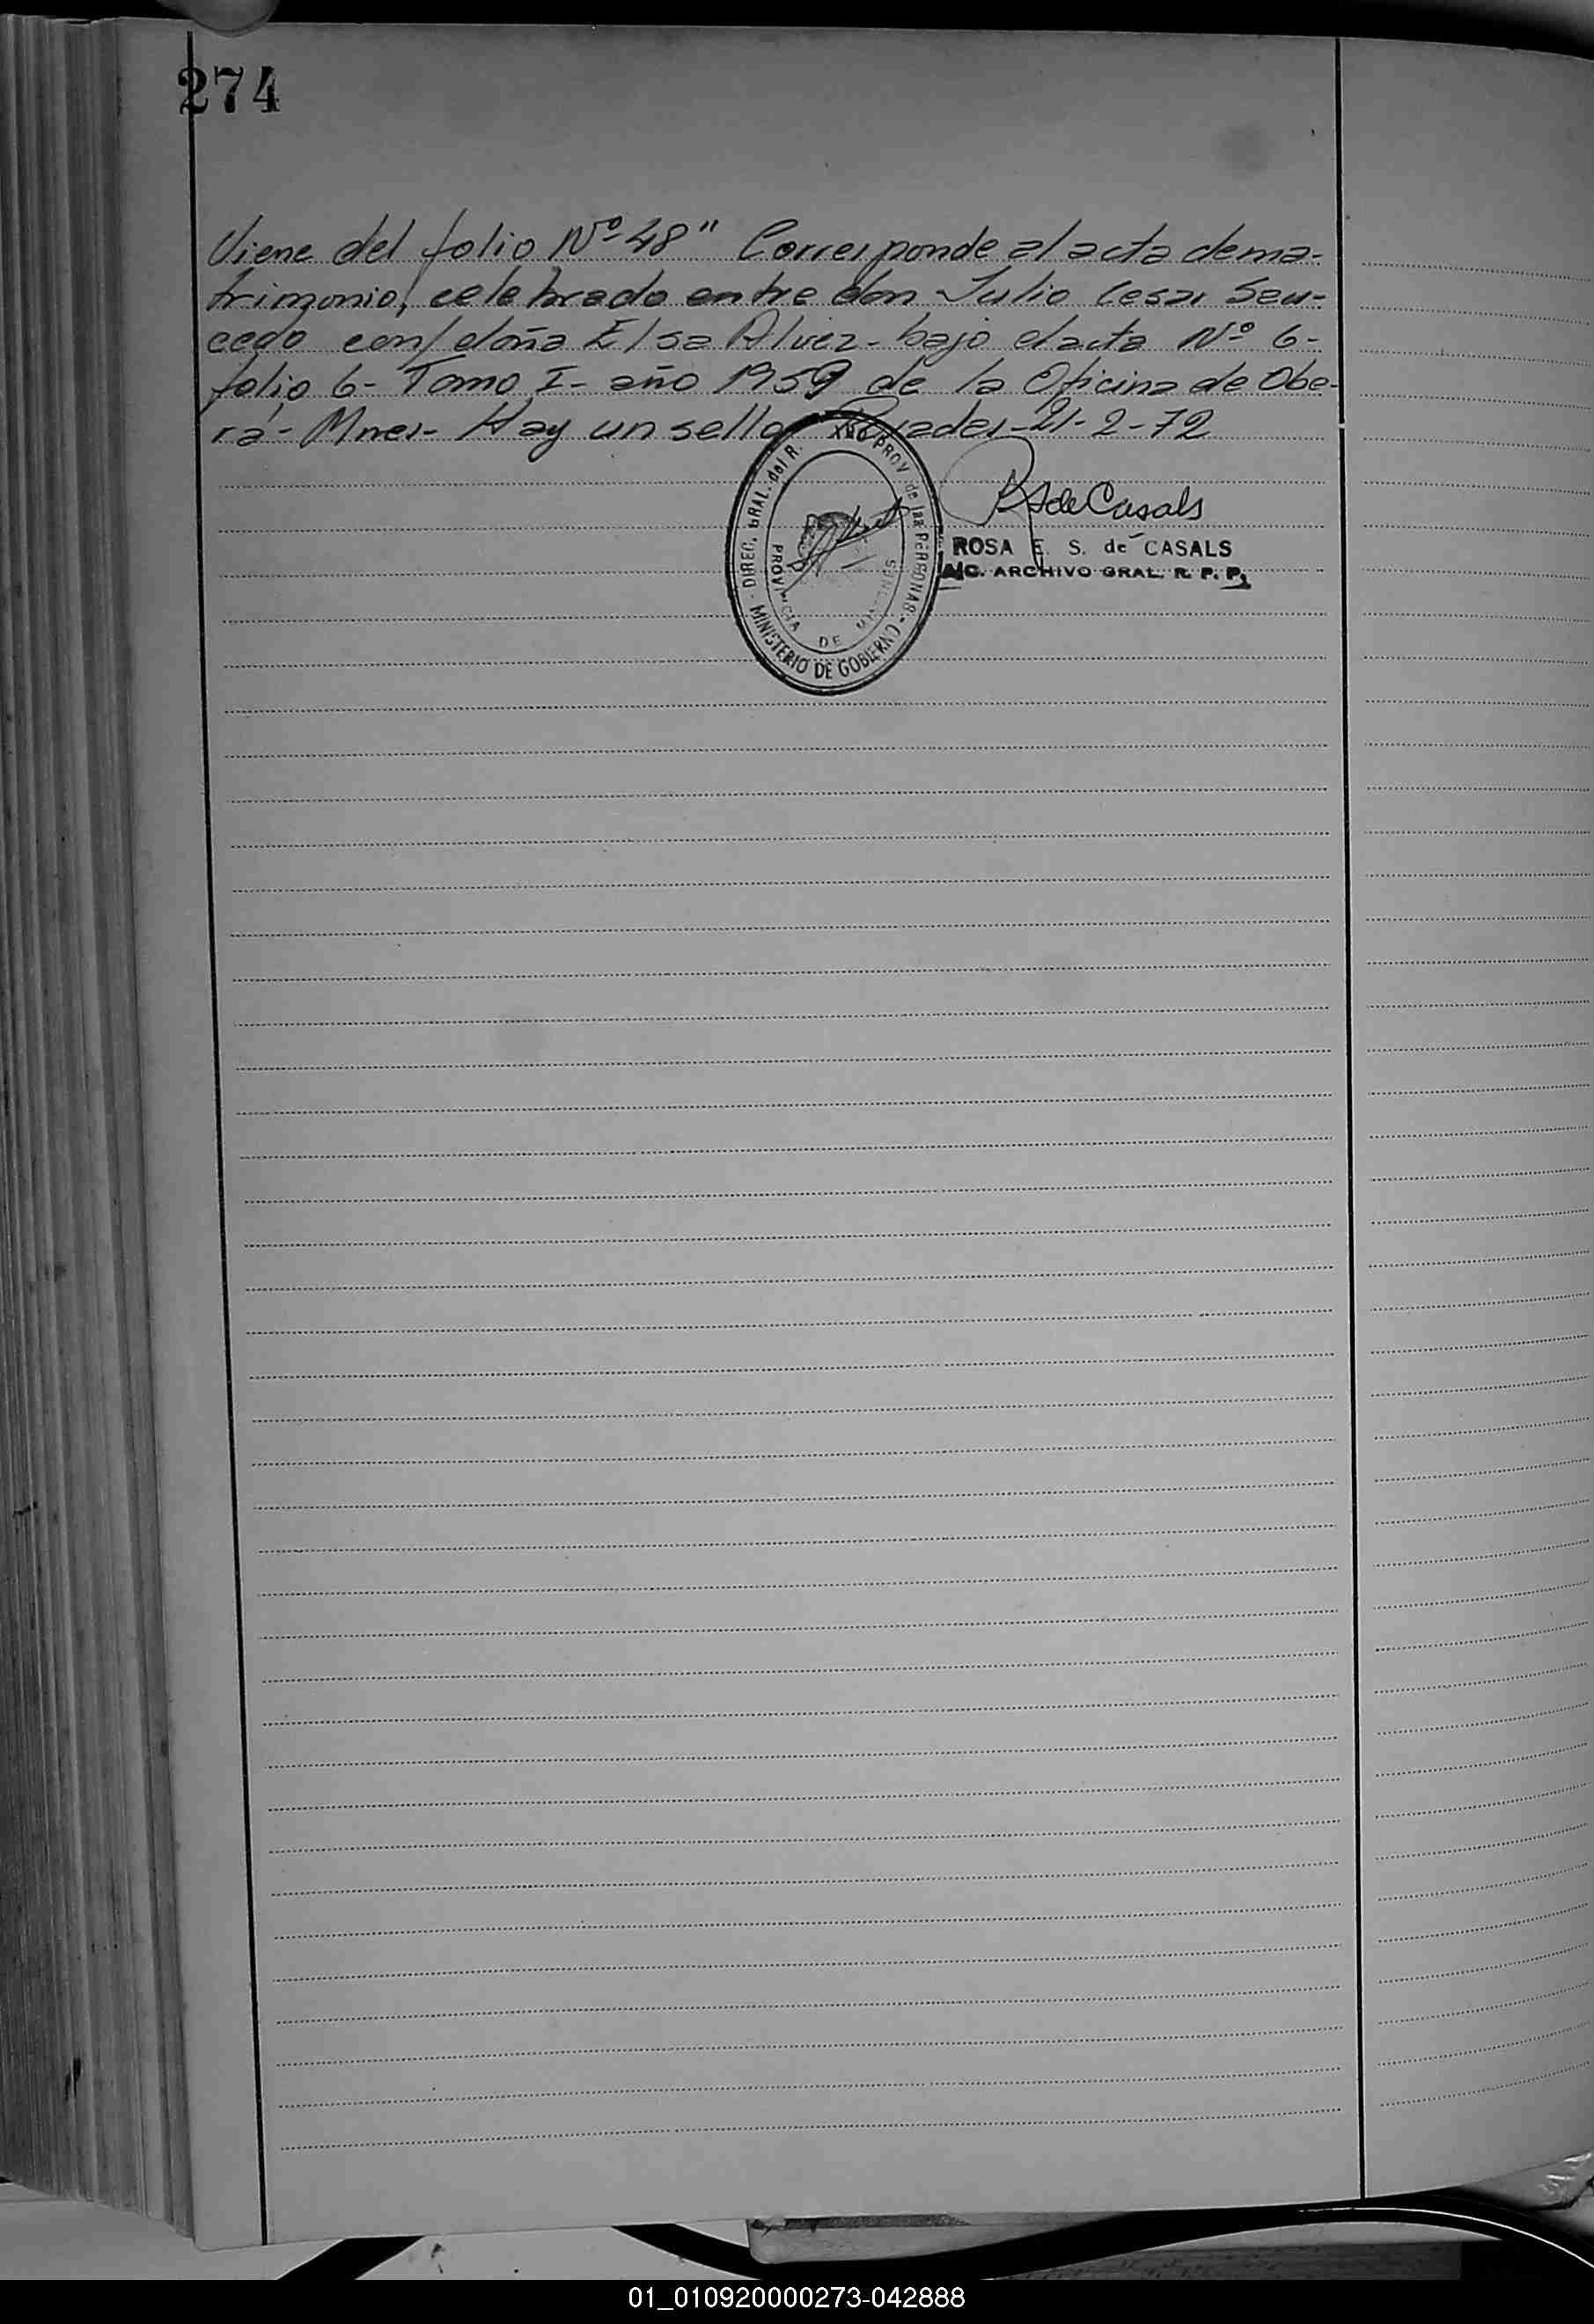 274
Viene del folio Nº 48" Corresponde al acta de ma-
trimonio, celebrado entre don Julio Cesar Sau-
cedo con doña Elsa Alvez - bajo el acta Nº 6-
folio 6- Tomo I- año 1959 de la Oficina de Obe-
rá- Mnes- Hay un sello Posadas- 21-2-72
RS de Casals
ROSA E. S. de CASALS
A/C. ARCHIVO GRAL. R. P. P.
DIREC. GRAL. del R. PROV. de las PERSONAS -
MINISTERIO DE GOBIERNO -
PROVINCIA DE MISIONES
01_010920000273-042888